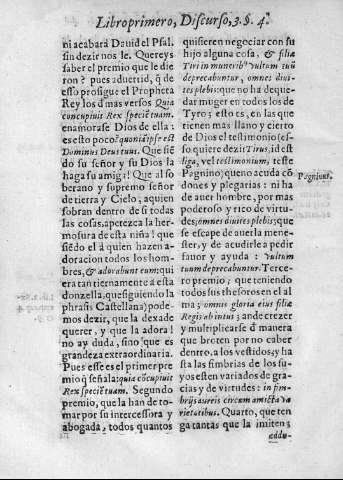 Libro primero, Discurso, 3. §. 4.
ni acabará Dauid el Psal.
sin dezirnos le. Quereys
saber el premio que le die
ron? pues aduertid, q̃ de
esso prosigue el Propheta
Rey los d̃mas versos Quia
concupiuit Rex speciẽ tuam.
enamorase Dios de ella:
es esto poco? quoniã ipse est
Dominus Deus tuus. Que siẽ
do su señor y su Dios la
haga su amiga! Que al so
berano y supremo señor
de tierra y Cielo, a quien
sobran dentro de si todas
las cosas, apetezca la her-
mosura de esta niña! que
siẽdo el á quien hazen a-
doracion todos los hom-
bres, & adorabunt eum: qui
era tan tiernamente a esta
donzella, que siguiendo la
phrasis Castellana) pode-
mos dezir, que la dexade
querer, y que la adora!
no ay duda, sino que es
grandeza extraordinaria.
Pues esse es el primer pre
mio q̃ señala: quia cõcupiuit
Rex speciẽ tuam. Segundo
premio, que la han de to-
mar por su intercessora y
abogada, todos quantos
quisieren negociar con su
hijo alguna cosa, & filiæ
Tiri in muneribꝰ vultum tuũ
deprecabuntur, omnes diui-
tes plebis: que no ha de que-
dar muger en todos los de
Tyro; esto es, en las que
tienen mas llano y cierto
de Dios el testimonio (es-
so quiere dezir Tirus, id est
liga, vel testimonium, teste
Pagnino; que no acuda cõ
dones y plegarias: ni ha
de auer hombre, por mas
poderoso y rico de virtu-
des, omnes diuites plebis: que
se escape de auerla menes-
ter, y de acudirle a pedir
fauor y ayuda: vultum
tuum deprecabuntur. Terce-
ro premio; que teniendo
todos sus thesoros en el al
ma; omnis gloria eius filiæ
Regis ab intus; ande crezer
y multiplicarse d̃ manera
que broten por no caber
dentro, a los vestidos; y ha
sta las fimbrias de los su-
yos esten variados de gra-
cias y de virtudes: in fim-
brijs aureis circum amicta va
rietatibus. Quarto, que ten
ga tantas que la imiten;
addu-
Pagninus.